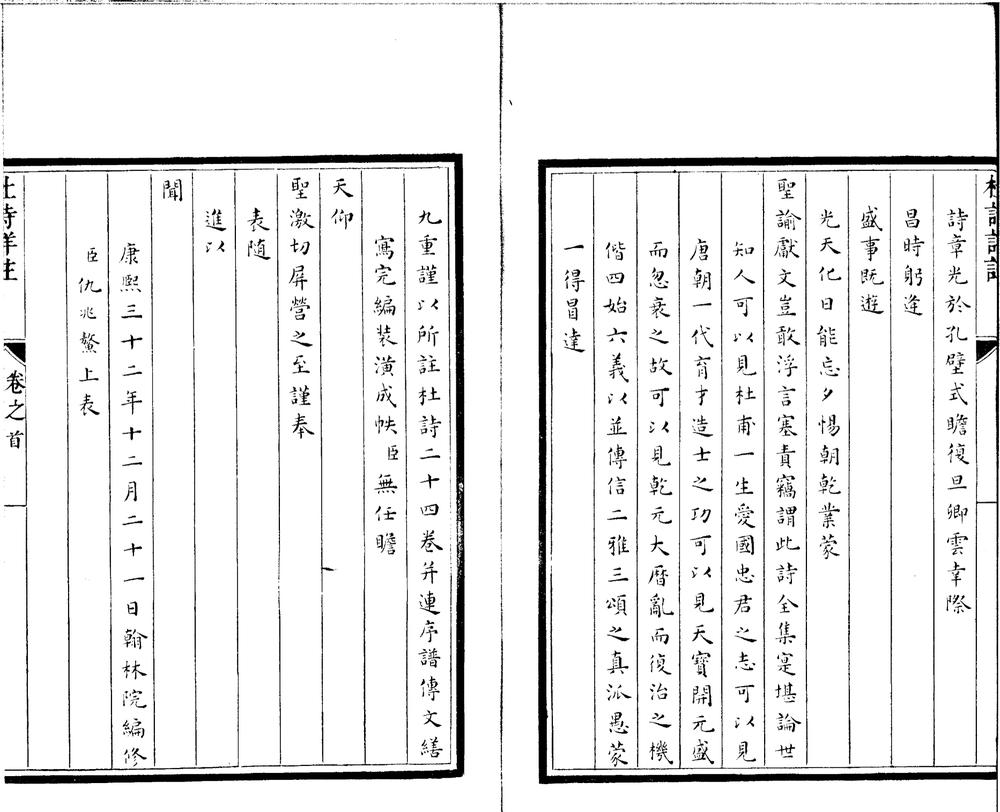 詩章光於孔壁式瞻復旦卿雲幸際
昌時躬逢
盛事既遊
光天化日能忘夕惕朝乾業蒙
聖諭獻文豈敢浮言塞責竊謂此詩全集寔堪論世
知人可以見杜甫一生愛國忠君之志可以見
唐朝一代育才造士之功可以見天寶開元盛
而忽衰之故可以見乾元大曆亂而復治之機
偕四始六義以並傳信二雅三頌之真派愚蒙
一得冒達
九重謹以所註杜詩二十四卷并連序譜傳文繕
寫完編裝潢成帙臣無任瞻
天仰
聖激切屏營之至謹奉
表隨
進以
聞
康熙三十二年十二月二十一日翰林院編修
臣仇兆鰲上表
杜詩詳註 卷之首